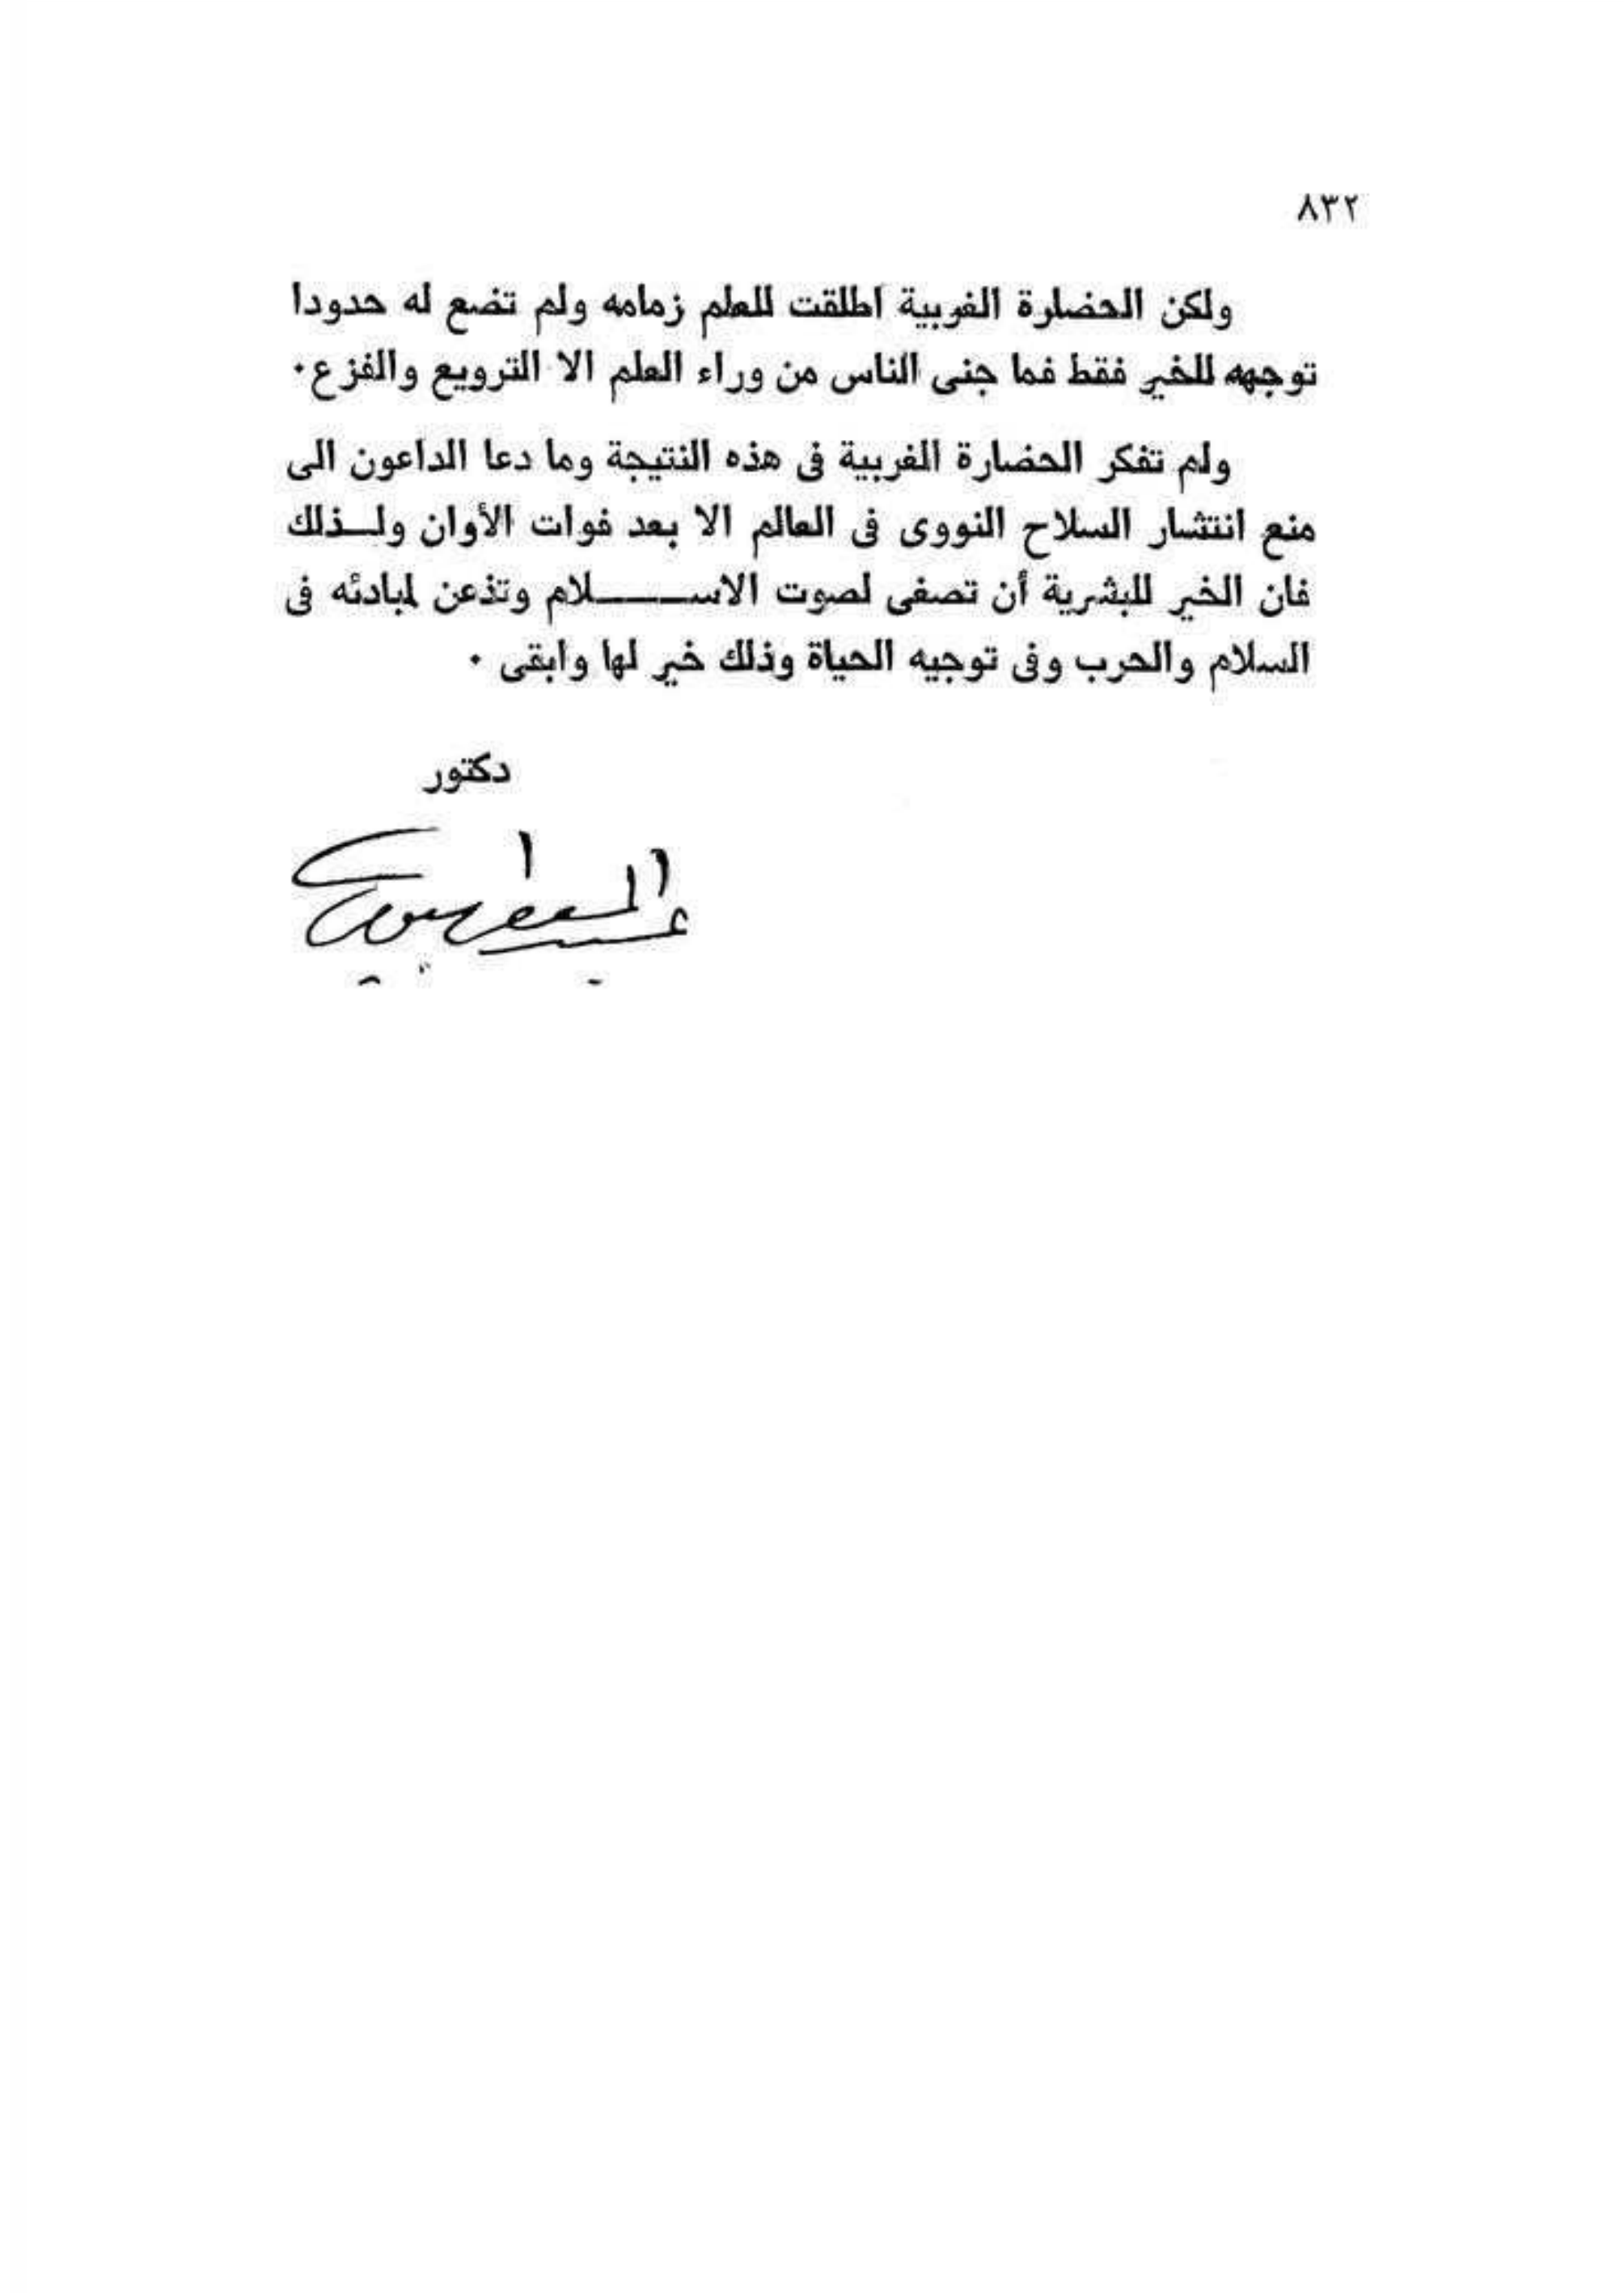 ٨٣٢
ولكن الحضارة الغربية اطلقت للعلم زمامه ولم تضع له حدودا
توجهه للخير فقط فما جنى الناس من وراء العلم الا الترويع والفزع ٠
ولم تفكر الحضارة الغربية فى هذه النتيجة وما دعا الداعون الى
منع انتشار السلاح النووى فى العالم الا بعد فوات الأوان ولـذلك
فان الخير للبشرية أن تصغى لصوت الاســـــلام وتذعن لمبادئه فى
السلام والحرب وفى توجيه الحياة وذلك خير لها وابقى ٠
دكتور